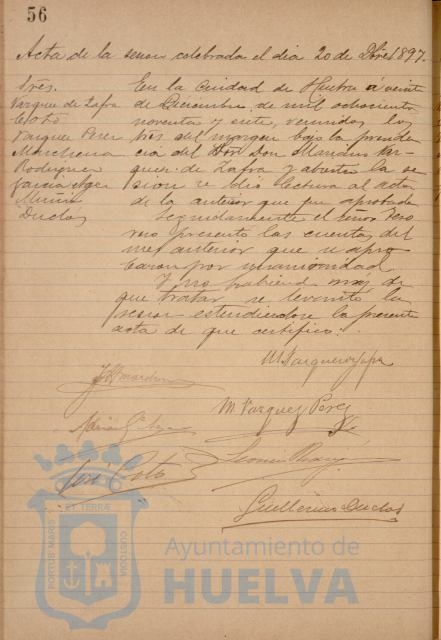 56
Acta de la sesion celebrada el dia 20 de Dbre 1897.
Sres.
Vazquez de Zafra
Coto
Vazquez Perez
Marchena
Rodriguez
Garcia Ager
Muñiz
Duclos
En la Ciudad de Huelva á veinte
de Diciembre de mil ochocientos
noventa y siete, reunidos los
Sres del margen bajo la presiden
cia del Sr Don Mariano Vaz-
quez de Zafra y abierta la se
sion se dio lectura al acta
de la anterior que fue aprobada
Seguidamente el Señor Teso
rero presentó las cuentas del
mes anterior que se apro
baron por unanimidad
Y no habiendo mas de
que tratar se levantó la
sesion estendiendose la presente
acta de que certifico.
M Vazquez de Zafra
M Vazquez Perez
José Coto
Guillermo Duclos
PORTUS MARIS
ET TERRÆ
CUSTODIA
Ayuntamiento de
HUELVA